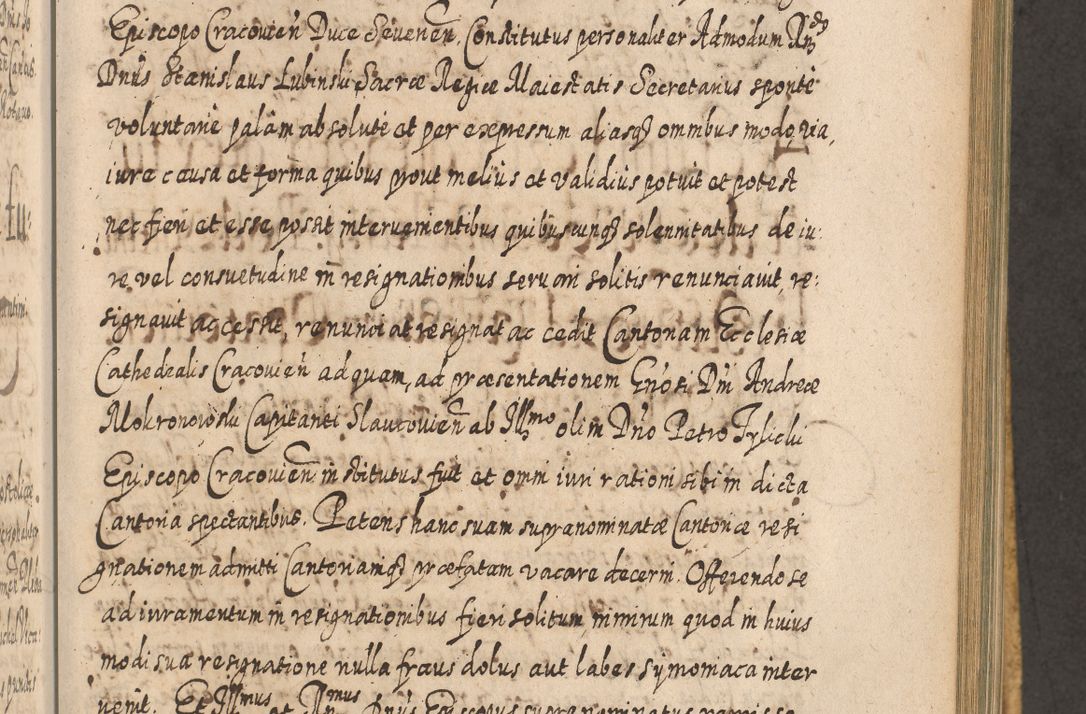 Episcopo Cracovien̄ Duce Severien̄. Constitutus personaliter Admodum Rn̄dọ
Dnūs Stanislaus Lubinski Sacræ Regiæ Maiestatis Secretarius sponte
voluntarie palàm absolutè et per expressum aliasq̄ omnibus modo, via,
iure causa et forma quibus prout meliùs et validiùs potuit et potest
nec fieri et esse possit intervenientibus quibuscunq̄ solennitatibus de iu:
re vel consuetudine in̄ resignationibus servari solitis renunciavit, re:
signavit ac cessit, renunciat resignat ac cedit Cantoriam Ecclesiæ
Cathedralis Cracovien̄ ad quam, ad præsentationem Gn̄osi Dn̄i Andreæ
Mokronowski Capitanei Slautovien̄ ab Illmo olim Dn̄o Petro Tylicki
Episcopo Cracovien̄ institutus fuit et omni iuri rationi sibi in dicta
Cantoria spectantibus. Petens hanc suam supranominatæ Cantoriæ resi
gnationem admitti Cantoriamq̄ præfatam vacare decerni. Offerendo se
ad iuramentum in̄ resignationibus fieri solitum, nimirum quod in huius
modi sua resignatione nulla fraus dolus aut labes symoniaca inter
venit. Et Illmus et Rn̄mus Dnūs Episcopus supranominatus